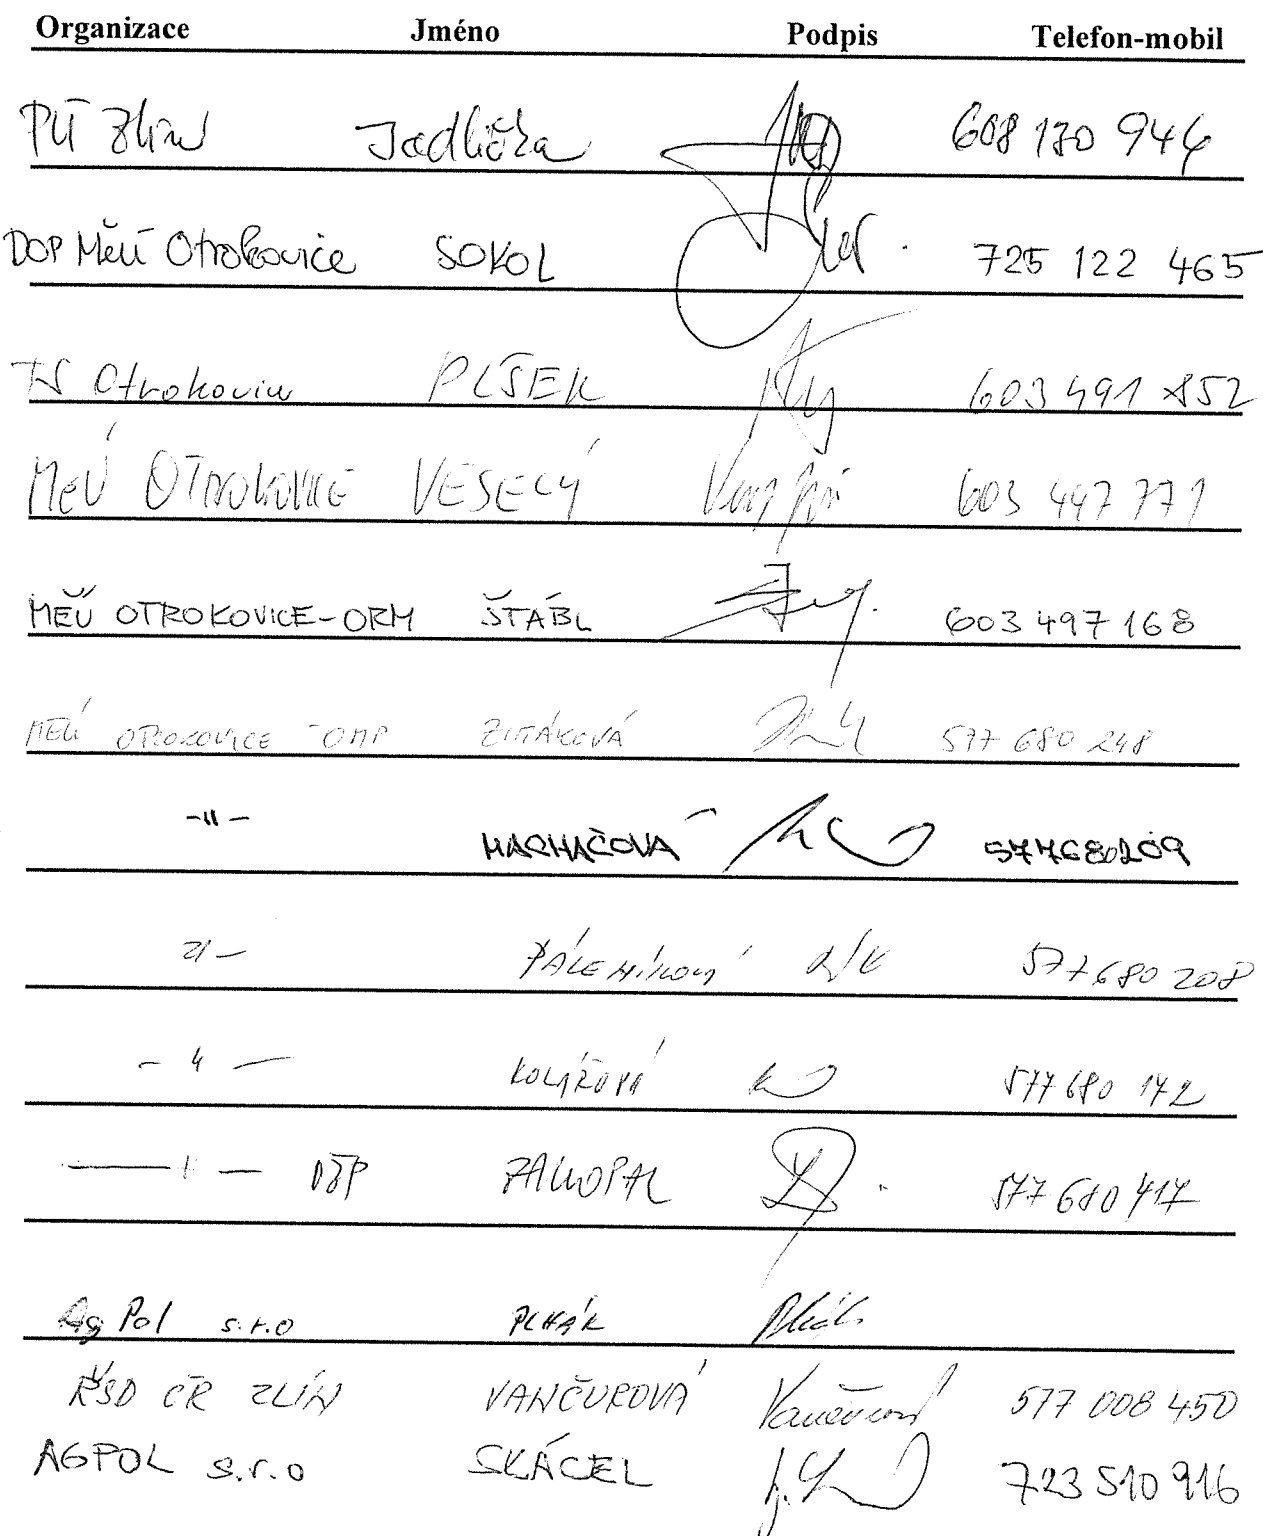 Organizace Jméno Podpis Telefon-mobil
PÚ Zlín Jadlička 608 130 946
DOP MěÚ Otrokovice SOKOL 725 122 465
TS Otrokovice PLŠEK 603 491 852
MěÚ OTROKOVICE VESELÝ 603 447 771
MĚÚ OTROKOVICE-ORM ŠTÁBL 603 497 168
MĚÚ OTROKOVICE - OMP ZITÁKOVÁ 577 680 248
-"- MACHAČOVÁ 577680209
-"- 577 680 208
-"- KOLÁŘOVÁ 577 680 172
-"- DŽP ZAKOPAL 577 680 417
Ag Pol s.r.o PLHÁK
ŘSD ČR ZLÍN VANČUROVÁ Vančurová 577 008 450
AGPOL s.r.o SKÁCEL 723 510 916